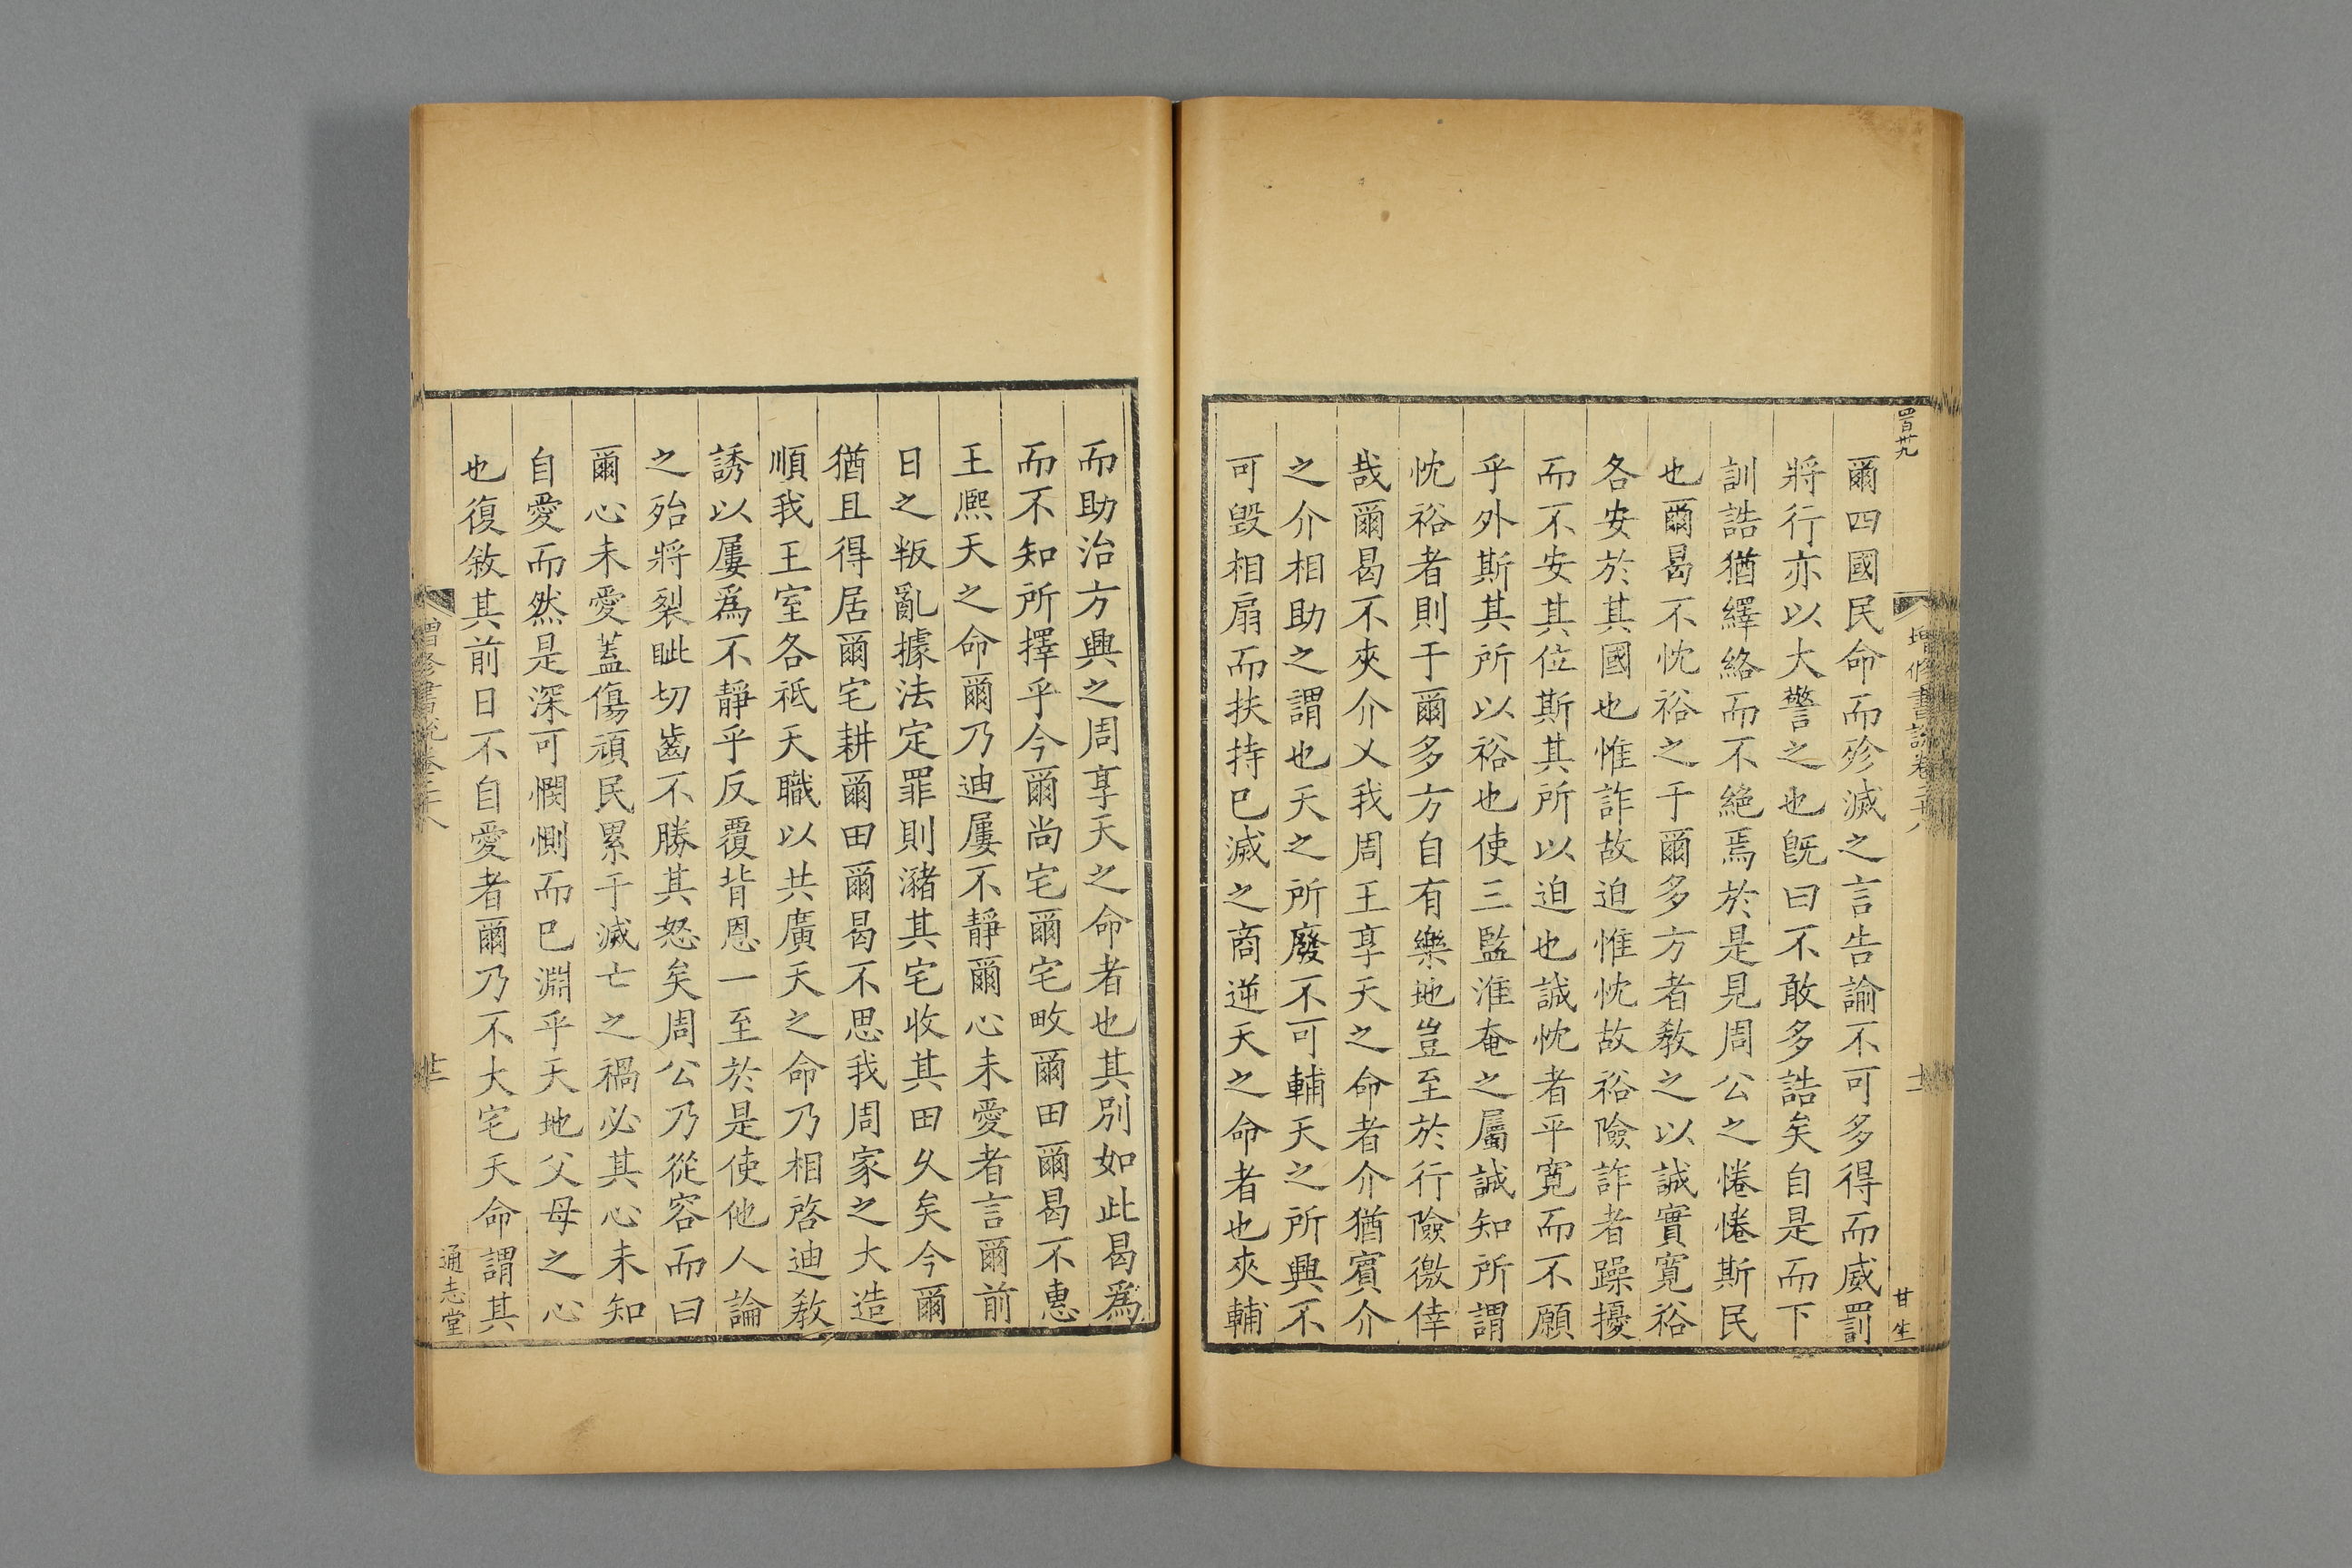 爾四國民命而殄滅之言告諭不可多得而威罰
將行亦以大警之也旣曰不敢多誥矣自是而下
訓誥猶繹絡而不絕焉於是見周公之惓惓斯民
也爾曷不忱裕之于爾多方者敎之以誠實寬裕
各安於其國也惟詐故迫惟忱故裕險詐者躁擾
而不安其位斯其所以迫也誠忱者平寬而不願
乎外斯其所以裕也使三監淮奄之屬誠知所謂
忱裕者則于爾多方自有樂地豈至於行險徼倖
哉爾曷不夾介乂我周王享天之命者介猶賓介
之介相助之謂也天之所廢不可輔天之所興不
可毀相扇而扶持已滅之商逆天之命者也夾輔
甘生
而助治方興之周享天之命者也其別如此曷爲
而不知所擇乎今爾尚宅爾宅畋爾田爾曷不惠
王熈天之命爾乃迪屢不靜爾心未愛者言爾前
日之叛亂據法定罪則瀦其宅收其田久矣今爾
猶且得居爾宅耕爾田爾曷不思我周家之大造
順我王室各祗天職以共廣天之命乃相啓迪敎
誘以屢爲不靜乎反覆背恩一至於是使他人論
之殆將裂眦切齒不勝其怒矣周公乃從容而曰
爾心未愛蓋傷頑民累于滅亡之禍必其心未知
自愛而然是深可憫惻而已淵乎天地父母之心
也復敘其前日不自愛者爾乃不大宅天命謂其
通志堂